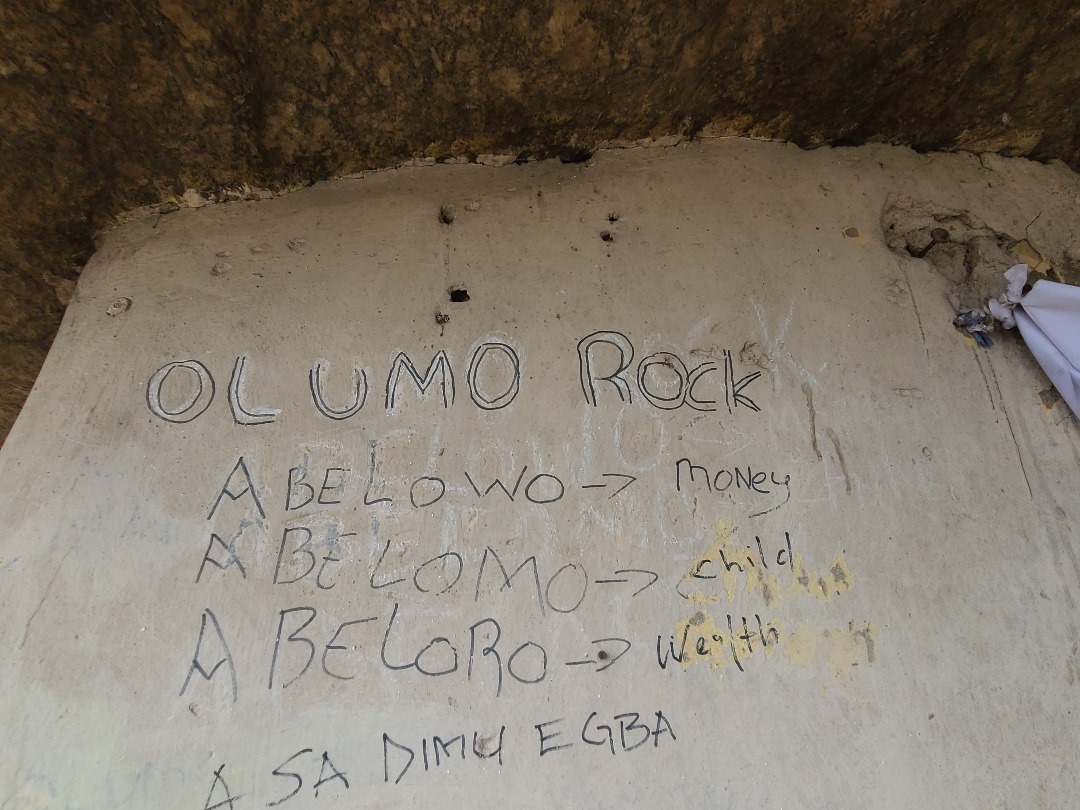 OLUMO ROCK
ABELOWO -> MONEY
ABELOMO -> child
ABELORO -> Wealth
A SA DIMU EGBA